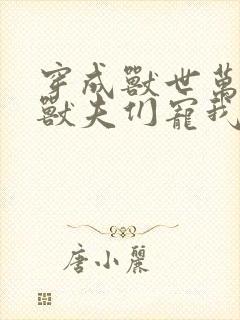 穿成獸世萬
獸夫们寵我
唐小麗